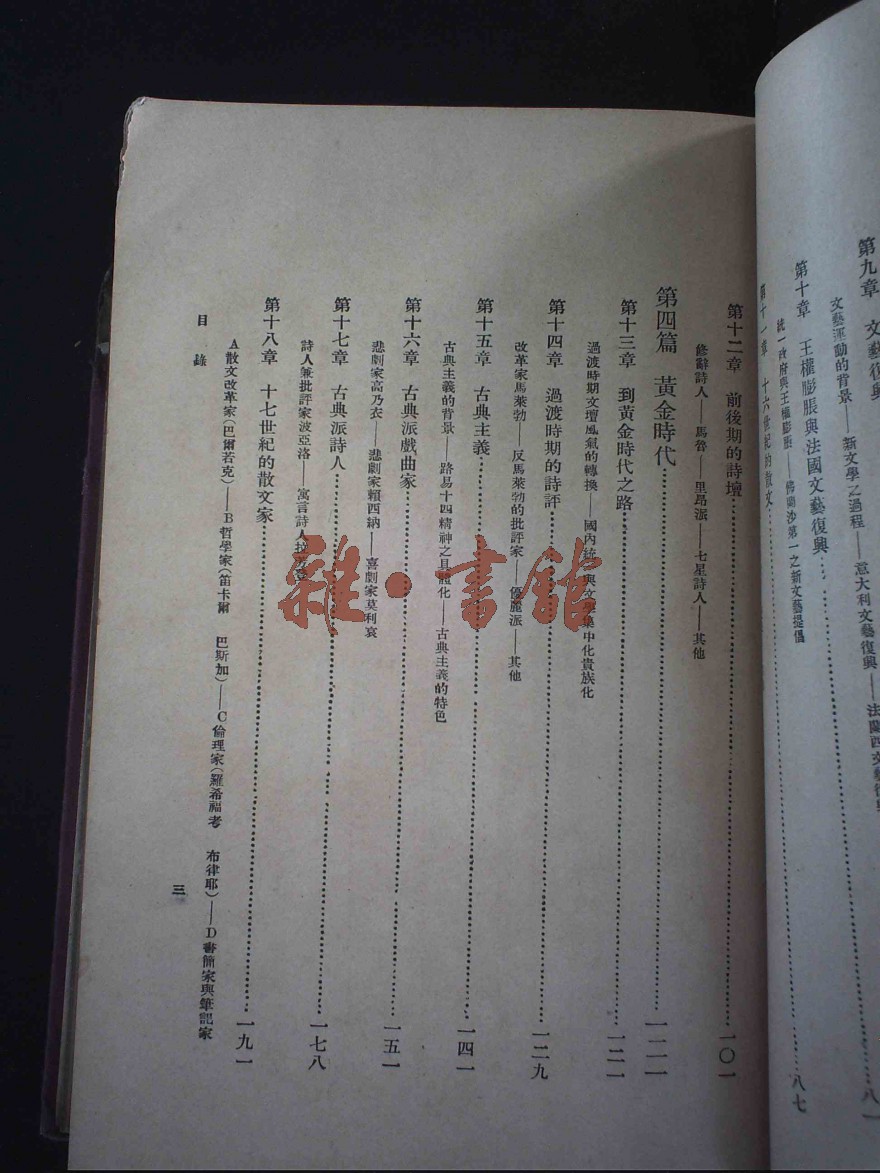 第九章 文藝復興
文藝運動的背景——新文學之過程——意大利文藝復興——法蘭西文藝復興
八一
第十章 王權膨脹與法國文藝復興……八七
統一政府與王權膨脹——佛蘭沙第一之新文藝提倡
第十一章 十六世紀的散文
第十二章 前後期的詩壇……一〇一
修辭詩人——馬魯——里昂派——七星詩人——其他
第四篇 黃金時代……一二一
第十三章 到黃金時代之路……一二一
過渡時期文壇風氣的轉換——國內統一與文學集中化貴族化
第十四章 過渡時期的詩評……一二九
改革家馬萊勃——反馬萊勃的批評家——優麗派——其他
第十五章 古典主義……一四一
古典主義的背景——路易十四精神之具體化——古典主義的特色
第十六章 古典派戲曲家……一五一
悲劇家高乃衣——悲劇家賴西納——喜劇家莫利哀
第十七章 古典派詩人……一七八
詩人兼批評家波亞洛——寓言詩人拉
第十八章 十七世紀的散文家……一九一
A散文改革家(巴爾若克)——B哲學家(笛卡爾 巴斯加)——C倫理家(羅希福考 布律耶)——D書簡家與筆記家
目錄
三
雜·書館